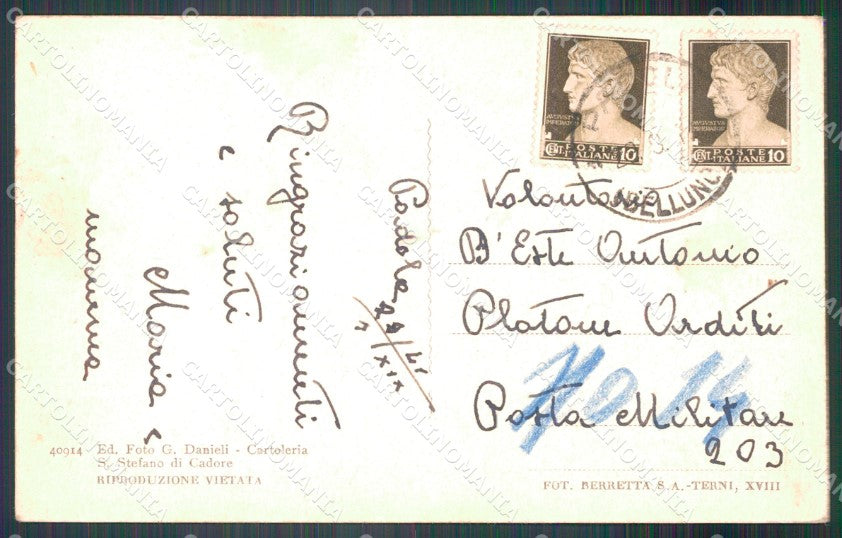 Ringraziamenti
e saluti
Maria e
mamma
Padola
Volontario
D'Este Antonio
Plotone Arditi
Posta Militare
203
AVGVSTVS
IMPERATOR
POSTE
ITALIANE
CENT. 10
AVGVSTVS
IMPERATOR
POSTE
ITALIANE
CENT. 10
BELLUNO
40914 Ed. Foto G. Danieli - Cartoleria
S. Stefano di Cadore
RIPRODUZIONE VIETATA
FOT. BERRETTA S.A.-TERNI, XVIII
CARTOLINOMANIA